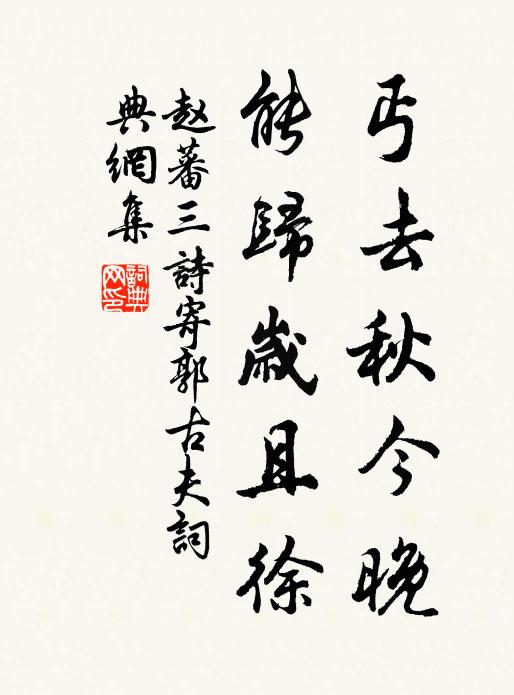 丐去秋今晚
能歸歲且徐
赵蕃三詩寄郭古夫詞
典網集
詞典网印